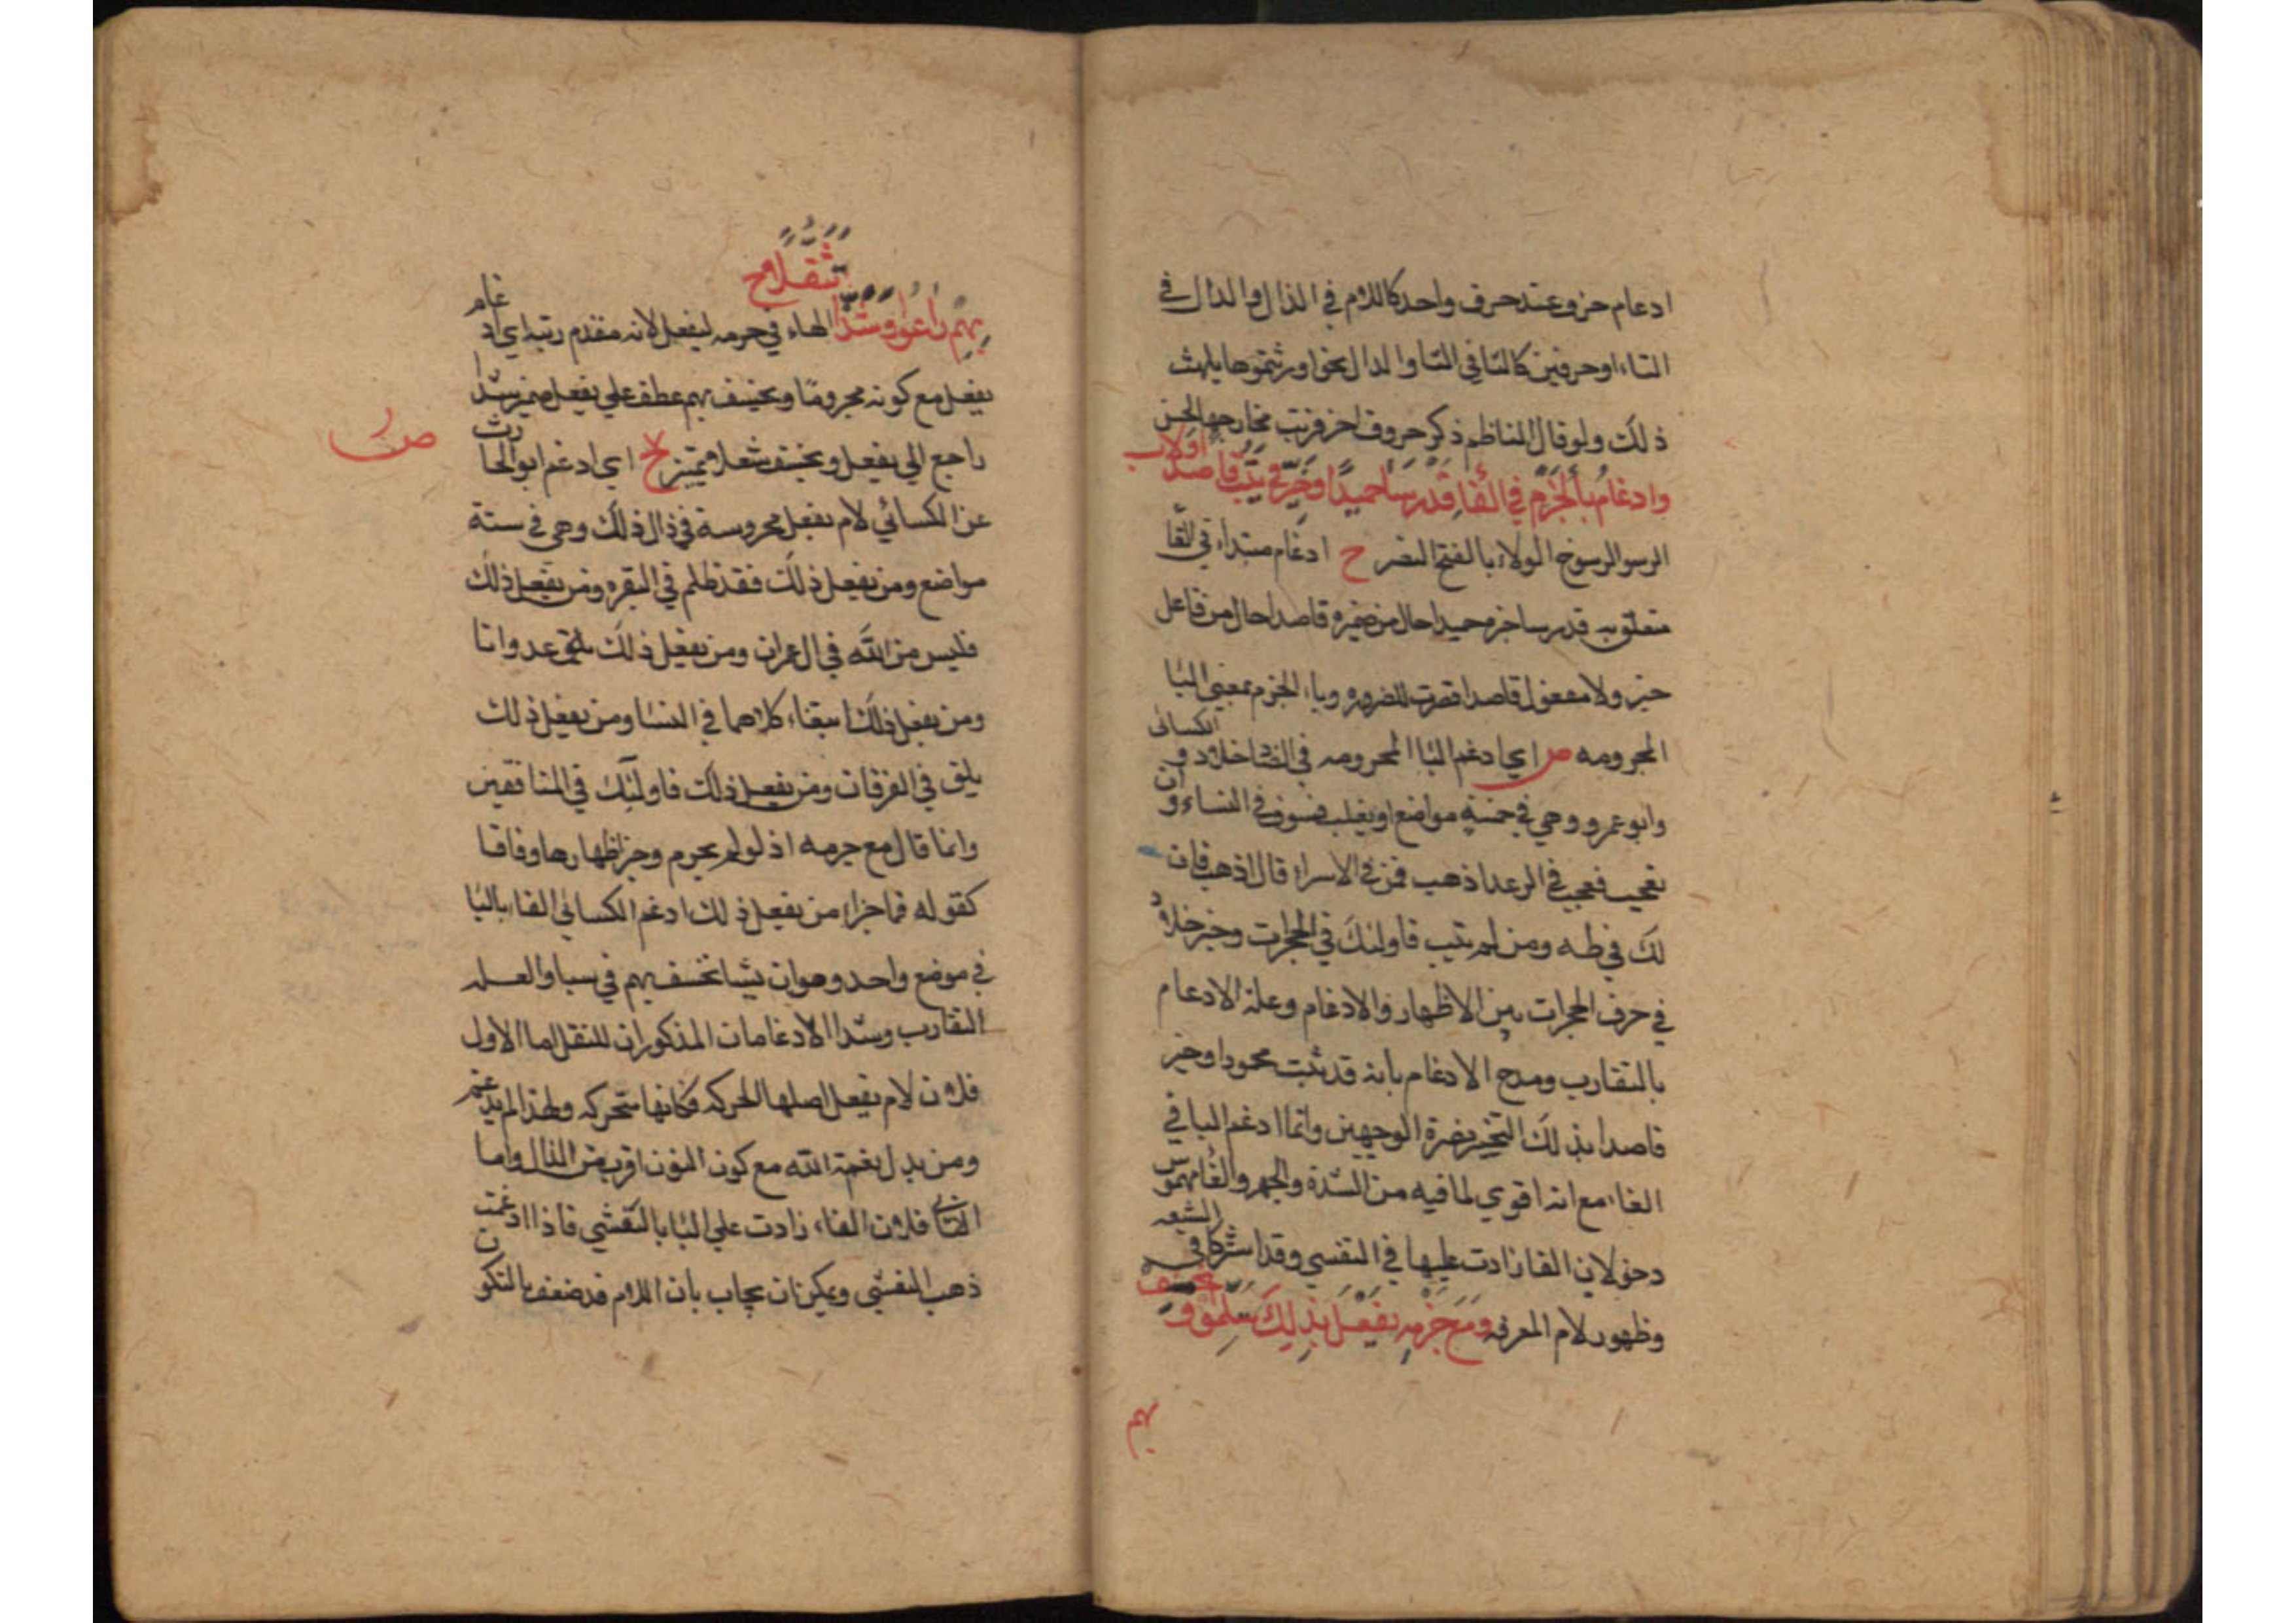 ادغام حروف عند حرف واحد كاللام في الذال والدال في
التاء او حرفين كالثا في التا والدال نحو اورثتموها يلهث
ذلك ولو قال الناظم ذكر حروف اخر قربت مخارجها لحسن
وادغام باء الجزم في الفا قد رسا حميدا وخير في يتب قاصدا ولا ب
الرسو الرسوخ الولاء بالفتح النصر ح ادغام مبتداء في الفا
متعلق به قد رسا خبره حميدا حال من ضميره قاصدا حال من فاعل
خير ولا مفعول قاصدا قصرت للضروره وباء الجزم بمعني البا
المجرومه ص اي ادغم البا المجرومه في الفا خلاد و الكسائي
وابو عمرو وهي في خمسة مواضع او يغلب فسوف في النساء و ان
تعجب فعجب في الرعد اذهب فمن في الاسراء قال اذهب فان
لك في طه ومن لم يتب فاولئك في الحجرات وخير خلاد
في حرف الحجرات بين الاظهار والادغام وعلة الادغام
بالتقارب ومدح الادغام بانه قد ثبت محمودا وخير
قاصدا بذلك التخيير نصرة الوجهين وانما ادغم البا في
الفاء مع انه اقوي لما فيه من الشدة والجهر والفا مهموس
دخو لان الفا زادت عليها في التفشي وقد اشتركا في الشفه
وظهور لام المعرفه ومع جزمه يفعل بذلك سلموا و نخسف
بهم
بهم راعوا وشذا تثقلا ح الهاء في جزمه ليفعل لانه مقدم رتبه اي ادغام
يفعل مع كونه مجزوما ونخسف بهم عطف علي يفعل ضمير شذا
راجع الي يفعل ونخسف تثقلا تمييز ح اي ادغم ابو الحارث
ص ر
عن الكسائي لام يفعل مجروسة في ذال ذلك وهي في ستة
مواضع ومن يفعل ذلك فقد ظلم في البقره ومن يفعل ذلك
فليس من الله في ال عمران ومن يفعل ذلك عدوانا
ومن يفعل ذلك ابتغاء كلاهما في النسا ومن يفعل ذلك
يلق في الفرقان ومن يفعل ذلك فاولئك في المنافقين
وانما قال مع جزمه اذ لو لم يجزم وجب اظهارها وفاقا
كقوله فما جزاء من يفعل ذلك ادغم الكسائي الفاء بالبا
في موضع واحد وهو ان يشا نخسف بهم في سبا والعله
التقارب وشذا الادغامان المذكوران للنقل اما الاول
فلان لام يفعل اصلها الحركه فكانها متحركه ولهذا لم يدغم
ومن يبدل نعمة الله مع كون النون اقرب من الذال واما
الثاني فلان الفاء زادت علي البا بالتفشي فاذا ادغمت
ذهب التفشي ويمكن ان يجاب بان اللام قد ضعف بالسكون